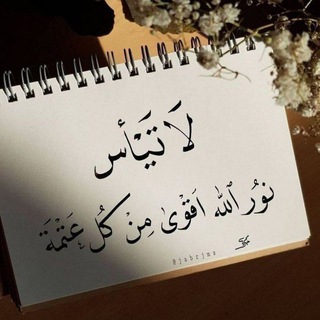 لَا تَيْأس
نُور الله اَقْوىٰ مِنْ كُل عَتْمَة
@jabrjms